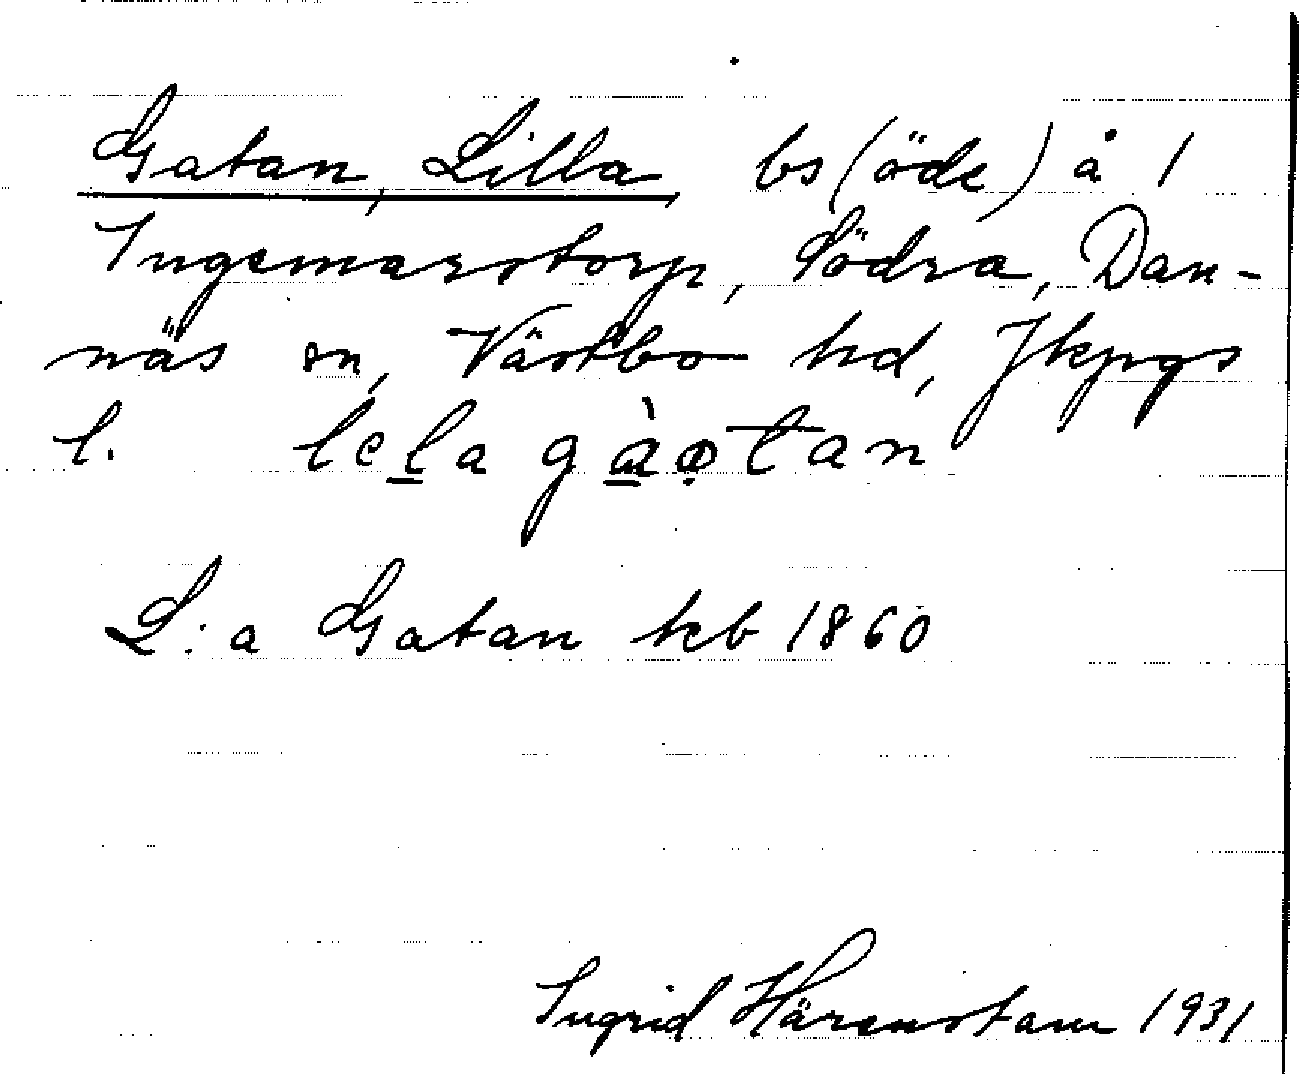 Gatan, Lilla bs (öde) å 1
Ingemarstorp, Södra, Dan-
näs sn, Västbo hd, Jkpgs
l. lela gàotan
L:a Gatan kb 1860
Ingrid Härenstam 1931